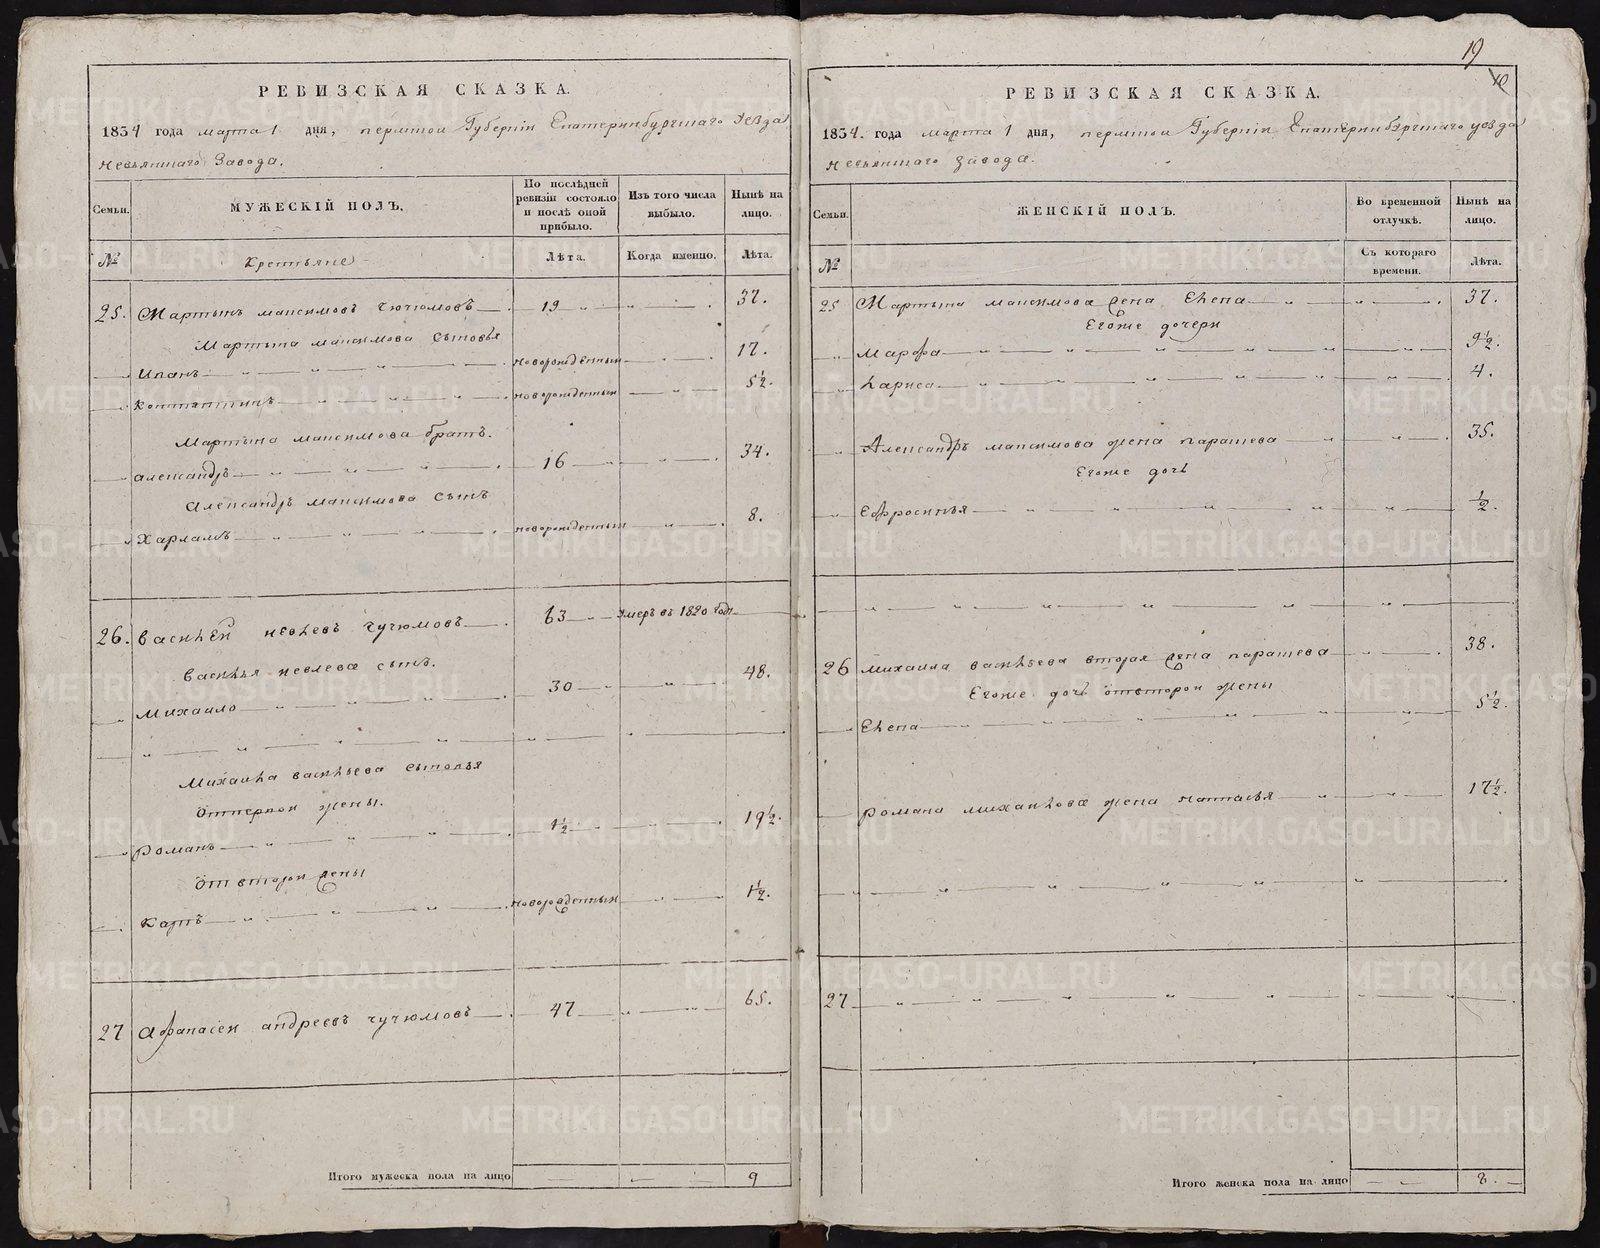 РЕВИЗСКАЯ СКАЗКА.
1834 года марта 1 дня, пермской Губерніи Екатеринбургскаго уѣзда
невьянскаго Завода.
Семьи.
МУЖЕСКІЙ ПОЛЪ.
По послѣдней ревизіи состояло и послѣ оной прибыло.
Изъ того числа выбыло.
Нынѣ на лицо.
№
Крестьяне
Лѣта.
Когда именно.
Лѣта.
25. Мартынъ максимовъ чючюмовъ 19 37.
Мартына максимова сыновья
Иванъ новорожденный 17.
Константинъ новорожденный 5½.
Мартына максимова братъ.
александръ 16 34.
Александръ максимова сынъ
Харламъ новорожденный 8.
26. Василей чучюмовъ 63 умеръ въ 1820 годе
Василья сынъ.
Михаило 30 48.
Михаила васильева сыновья
От первой жены.
Романъ 1½ 19½.
От второй жены
Карпъ новорожденный 1½.
27 Афанасіей андреевъ чучюмовъ 47 65.
Итого мужеска пола на лицо 9
19
РЕВИЗСКАЯ СКАЗКА.
1834. года марта 1 дня, пермской Губерніи Екатеринбургскаго уезда
невьянскаго завода.
Семьи.
ЖЕНСКІЙ ПОЛЪ.
Во временной отлучкѣ.
Нынѣ на лицо.
№
Съ котораго времени.
Лѣта.
25 Мартына максимова жена Елена 37.
Егоже дочери
Марфа 9½.
Лариса 4.
Александръ максимова жена парасева 35.
Егоже дочь
Ефросинья ½.
26 михаила васильева вторая жена парасева 38.
Егоже дочь от второй жены
Елена 5½.
Романа михайлова жена настасья 17½.
27
Итого женска пола на лицо 8.
METRIKI.GASO-URAL.RU